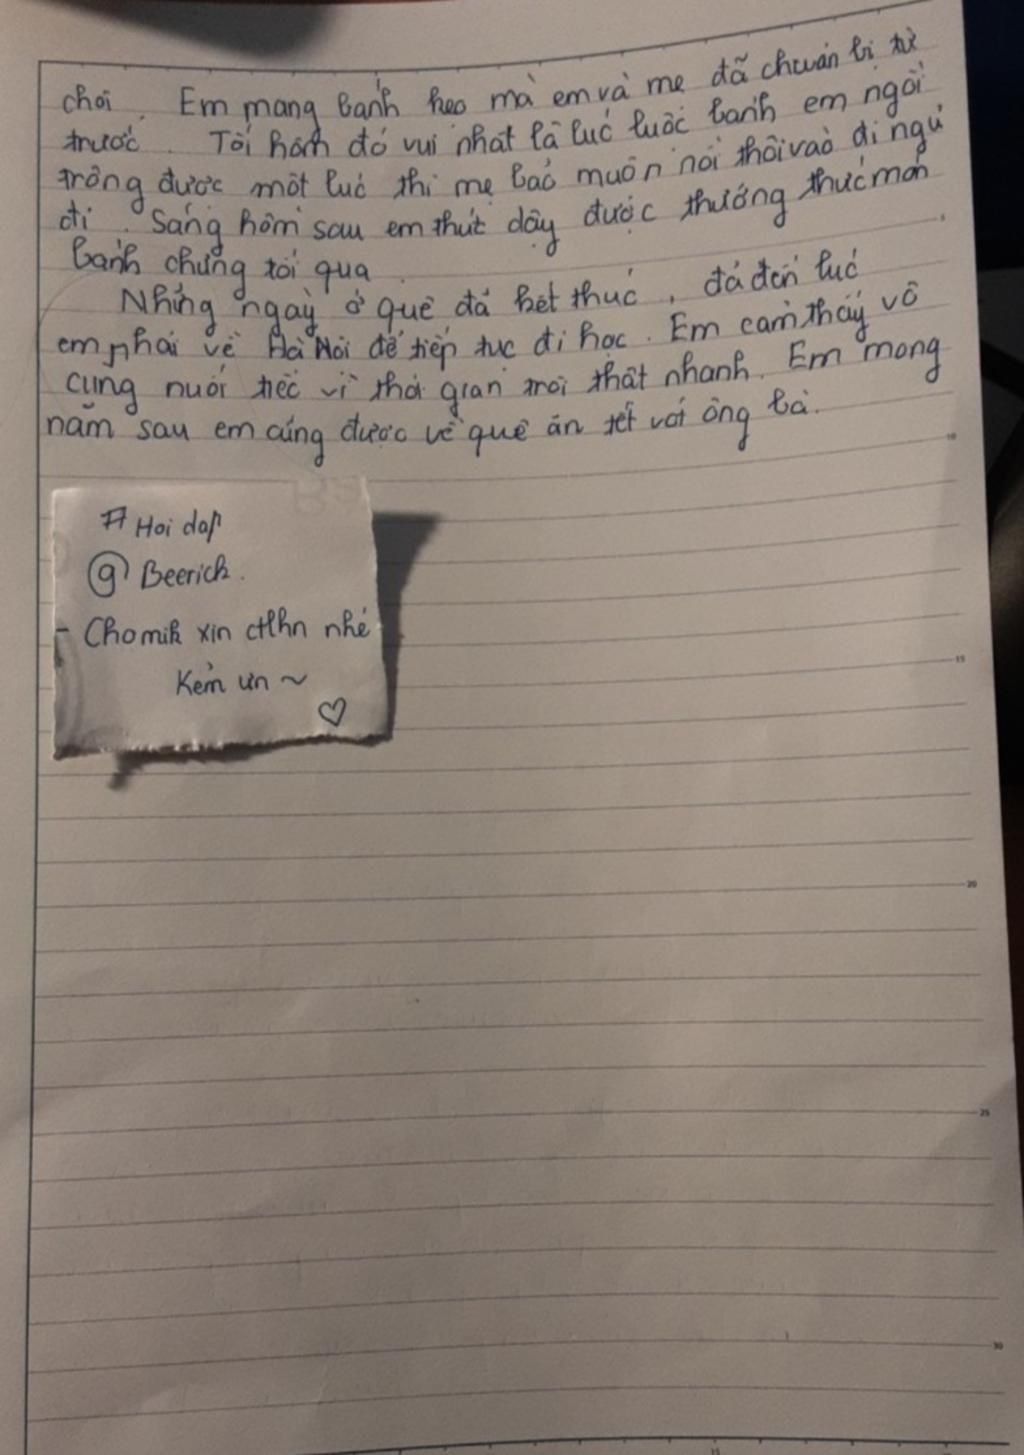 chơi. Em mang bánh kẹo mà em và mẹ đã chuẩn bị từ
trước. Tối hôm đó vui nhất là lúc luộc bánh em ngồi
trông được một lúc thì mẹ bảo muộn rồi thôi vào đi ngủ
đi. Sáng hôm sau em thức dậy được thưởng thức món
bánh chưng tối qua.
Những ngày ở quê đã kết thúc, đã đến lúc
em phải về Hà Nội để tiếp tục đi học. Em cảm thấy vô
cùng nuối tiếc vì thời gian trôi thật nhanh. Em mong
năm sau em cũng được về quê ăn tết với ông bà.
# Hoi dap
@ Beerich.
- Cho mik xin ctlhn nhé
Kẻm ưn ~
♡